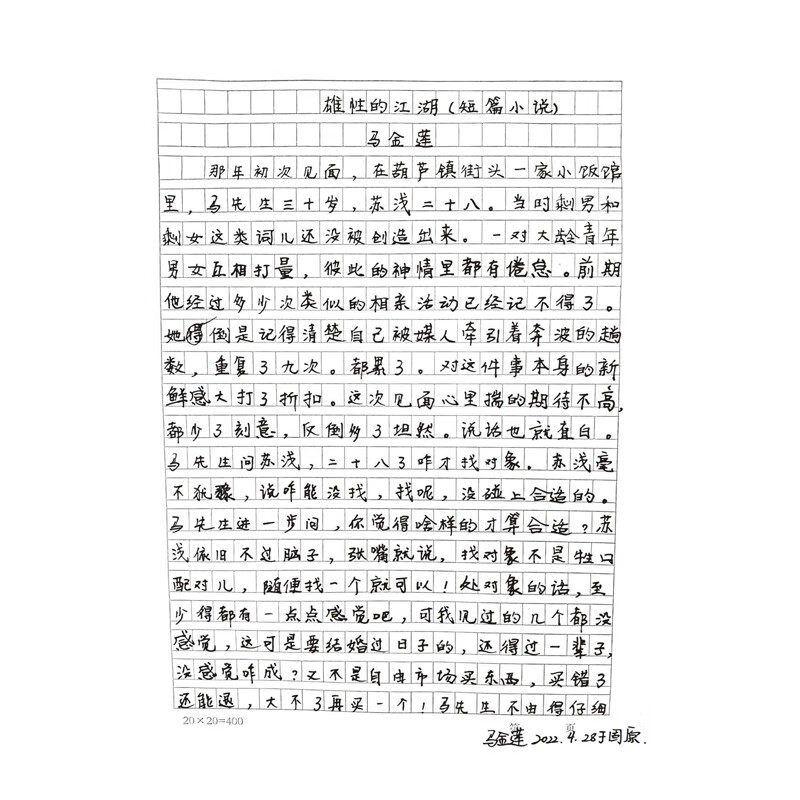 雄性的江湖(短篇小说)
马金莲
那年初次见面，在葫芦镇街头一家小饭馆
里，马先生三十岁，苏浅二十八。当时剩男和
剩女这类词儿还没被创造出来。一对大龄青年
男女互相打量，彼此的神情里都有倦怠。前期
他经过多少次类似的相亲活动已经记不得了。
她得倒是记得清楚自己被媒人牵引着奔波的趟
数，重复了九次。都累了。对这件事本身的新
鲜感大打了折扣。这次见面心里揣的期待不高，
都少了刻意，反倒多了坦然。说话也就直白。
马先生问苏浅，二十八了咋才找对象。苏浅毫
不犹豫，说咋能没找，找呢，没碰上合适的。
马先生进一步问，你觉得啥样的才算合适？苏
浅依旧不过脑子，张嘴就说，找对象不是牲口
配对儿，随便找一个就可以！处对象的话，至
少得都有一点点感觉吧，可我见过的几个都没
感觉，这可是要结婚过日子的，还得过一辈子，
没感觉咋成？又不是自由市场买东西，买错了
还能退，大不了再买一个！马先生不由得仔细
20×20=400
第 页
马金莲 2022.4.28于固原.